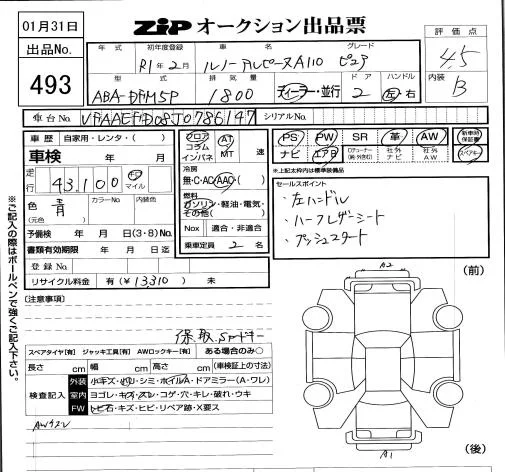 01月31日
ZiP オークション出品票
出品No.
493
年式
初年度登録
車名
グレード
評価点
R1年2月
ルノーアルピーヌA110 ピュア
4.5
型式
排気量
ドア
ハンドル
内装
ABA-DFM5P
1800
ディーラー・並行
2
左・右
B
車台No.
VFAAEFD08J0786147
シリアルNo.
車歴
自家用・レンタ・( )
車検
年 月
走行
43,100
km
マイル
色
青
(元色)
カラーNo.
内装色
予備検
年 月 日(3・8)No.
書類有効期限
年 月 日迄
登録No.
リサイクル料金
有(¥13,310) 未
フロア
コラム
インパネ
AT
MT
速
冷房
無・C・AC・AAC・( )
燃料
ガソリン・軽油・電気・
その他( )
Nox
適合・非適合
乗車定員
2
名
PS
PW
SR
革
AW
新車時保証書
ナビ
エアB
社外ナビ
社外AW
スペアキー
※上記太枠内は標準装備品
セールスポイント
・左ハンドル
・ハーフレザーシート
・プッシュスタート
※ご記入の際はボールペンで強くご記入下さい。
[注意事項]
保、取、スマートキー
スペアタイヤ[有] ジャッキ工具[有] AWロックキー[有] ある場合のみ○
長さ cm 幅 cm 高さ cm (車検証上の数値)
検査記入
外装
小キズ・凹・シミ・ホイルA・ドアミラー(A・ワレ)
室内
ヨゴレ・キズ・スレ・コゲ・穴・キレ・破れ・ウキ
FW
トビ石・キズ・ヒビ・リペア跡・X要ス
AWキズ
A2
(前)
A1
(後)